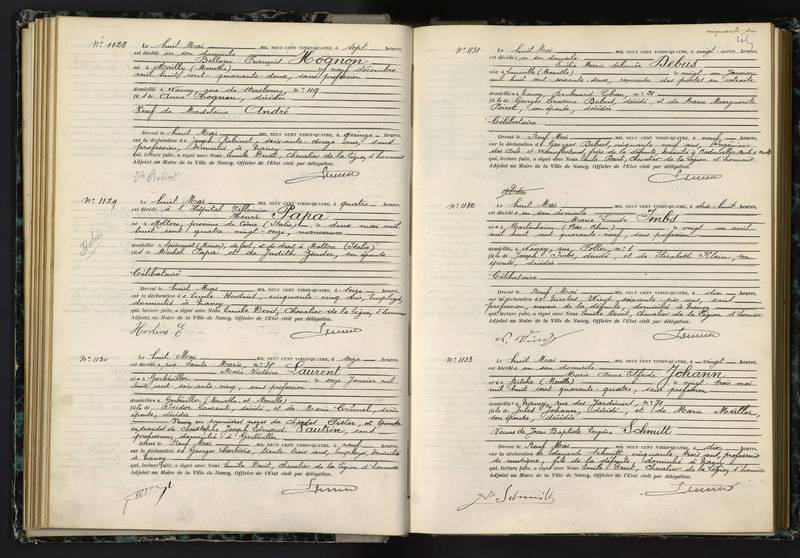 N° 1128 Le huit Mai MIL NEUF CENT VINGT-QUATRE, à sept heures,
est décédé en son domicile
François Hognon
né à (Meurthe) le neuf décembre
mil huit cent quarante deux, sans profession
domicilié à Nancy, rue de Strasbourg, n° 119
fil s de Anne Hognon, décédée
Veuf de Madeleine André
Dressé le huit Mai MIL NEUF CENT VINGT-QUATRE, à quinze heures,
sur la déclaration de Joseph Robinet, soixante douze ans, sans
profession, domicilié à Nancy
qui, lecture faite, a signé avec Nous Emile Devit, Chevalier de la Légion d'honneur
Adjoint au Maire de la Ville de Nancy, Officier de l'Etat civil par délégation.
N° 1129 Le huit Mai MIL NEUF CENT VINGT-QUATRE, à quatre heures,
est décédé à l'Hôpital Villemin
Henri Papa
né à Moltore, province de Côme (Italie) le deux mai mil
huit cent quatre-vingt-onze, manoeuvre
domicilié à (Meuse), de fait, et de droit à Moltere (Italie)
fil s de Michel Papa et de Judith, son épouse
Célibataire
Dressé le huit Mai MIL NEUF CENT VINGT-QUATRE, à seize heures,
sur la déclaration de Emile, cinquante cinq ans, employé,
domicilié à Nancy
qui, lecture faite, a signé avec Nous Emile Devit, Chevalier de la Légion d'honneur
Adjoint au Maire de la Ville de Nancy, Officier de l'Etat civil par délégation.
N° 1130 Le huit Mai MIL NEUF CENT VINGT-QUATRE, à seize heures,
est décédée rue Sainte Marie, n° 35
Marie Laurent
née à Gerbéviller le onze Janvier mil
huit cent soixante cinq, sans profession
domiciliée à Gerbéviller (Meurthe et Moselle)
fil le de Laurent, décédé, et de Marie, son
épouse, décédée
Joseph Edmond Vautrin, sans
profession, domicilié à Gerbéviller
Dressé le Neuf Mai MIL NEUF CENT VINGT-QUATRE, à neuf heures,
sur la déclaration de Georges, trente trois ans, employé, domicilié
à Nancy
qui, lecture faite, a signé avec Nous Emile Devit, Chevalier de la Légion d'honneur
Adjoint au Maire de la Ville de Nancy, Officier de l'Etat civil par délégation.
N° 1131 Le huit Mai MIL NEUF CENT VINGT-QUATRE, à vingt-une heures,
est décédée en son domicile
Marie Debus
née à Lunéville (Meurthe) le vingt un Janvier
mil huit cent soixante deux, des postes en retraite
domiciliée à Nancy, Boulevard Lobau, n° 31
fil le de Georges Erasme Debus, décédé, et de Marie Marguerite
Poirot, son épouse, décédée
Célibataire
Dressé le Neuf Mai MIL NEUF CENT VINGT-QUATRE, à neuf heures,
sur la déclaration de Georges Debus, cinquante neuf ans, Ingénieur
des Arts et Manufactures, frère de la défunte, domicilié à
qui, lecture faite, a signé avec Nous Emile Devit, Chevalier de la Légion d'honneur
Adjoint au Maire de la Ville de Nancy, Officier de l'Etat civil par délégation.
N° 1132 Le huit Mai MIL NEUF CENT VINGT-QUATRE, à dix huit heures,
est décédée en son domicile
Marie Louise Imbs
née à Marlenheim (Bas Rhin) le vingt un avril
mil huit cent quarante neuf, sans profession
domiciliée à Nancy, rue, n° 1
fil le de Joseph Imbs, décédé, et de Elisabeth Klein, son
épouse, décédée
Célibataire
Dressé le Neuf Mai MIL NEUF CENT VINGT-QUATRE, à dix heures,
sur la déclaration de Nicolas, soixante six ans, sans
profession, neveu de la défunte, domicilié à Nancy
qui, lecture faite, a signé avec Nous Emile Devit, Chevalier de la Légion d'honneur
Adjoint au Maire de la Ville de Nancy, Officier de l'Etat civil par délégation.
N° 1133 Le huit Mai MIL NEUF CENT VINGT-QUATRE, à vingt heures,
est décédée en son domicile
Marie Anne Johann
née à Bitche (Moselle) le vingt trois mai
mil huit cent quarante-quatre, sans profession
domiciliée à Nancy, rue des Jardiniers, n° 71
fil le de Jules Johann, décédé, et de Marie, son
épouse, décédée
Veuve de Jean Baptiste Eugène Schmitt
Dressé le Neuf Mai MIL NEUF CENT VINGT-QUATRE, à dix heures,
sur la déclaration de Edouard Schmitt, cinquante trois ans, professeur
de musique, fils de la défunte, domicilié à Nancy
qui, lecture faite, a signé avec Nous Emile Devit, Chevalier de la Légion d'honneur
Adjoint au Maire de la Ville de Nancy, Officier de l'Etat civil par délégation.
Schmitt